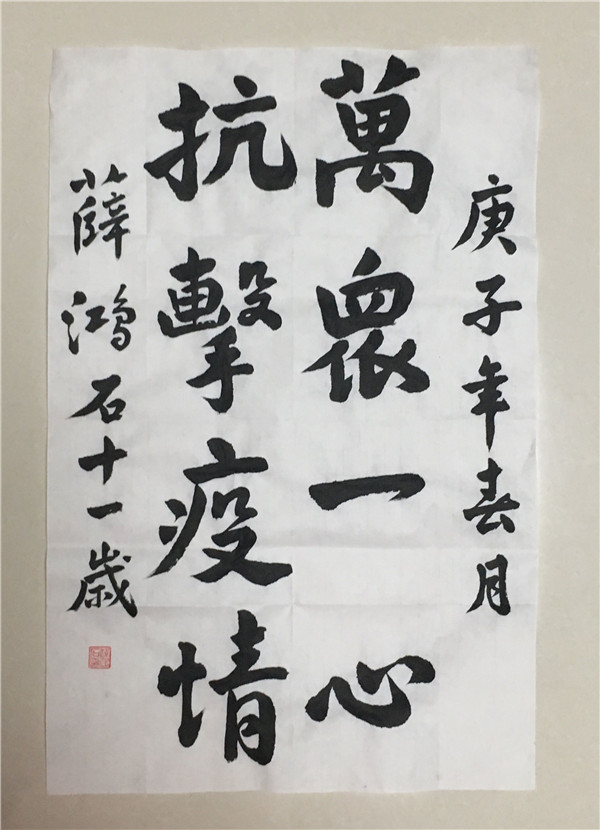 庚子年春月
萬眾一心
抗擊疫情
薛鴻石十一歲